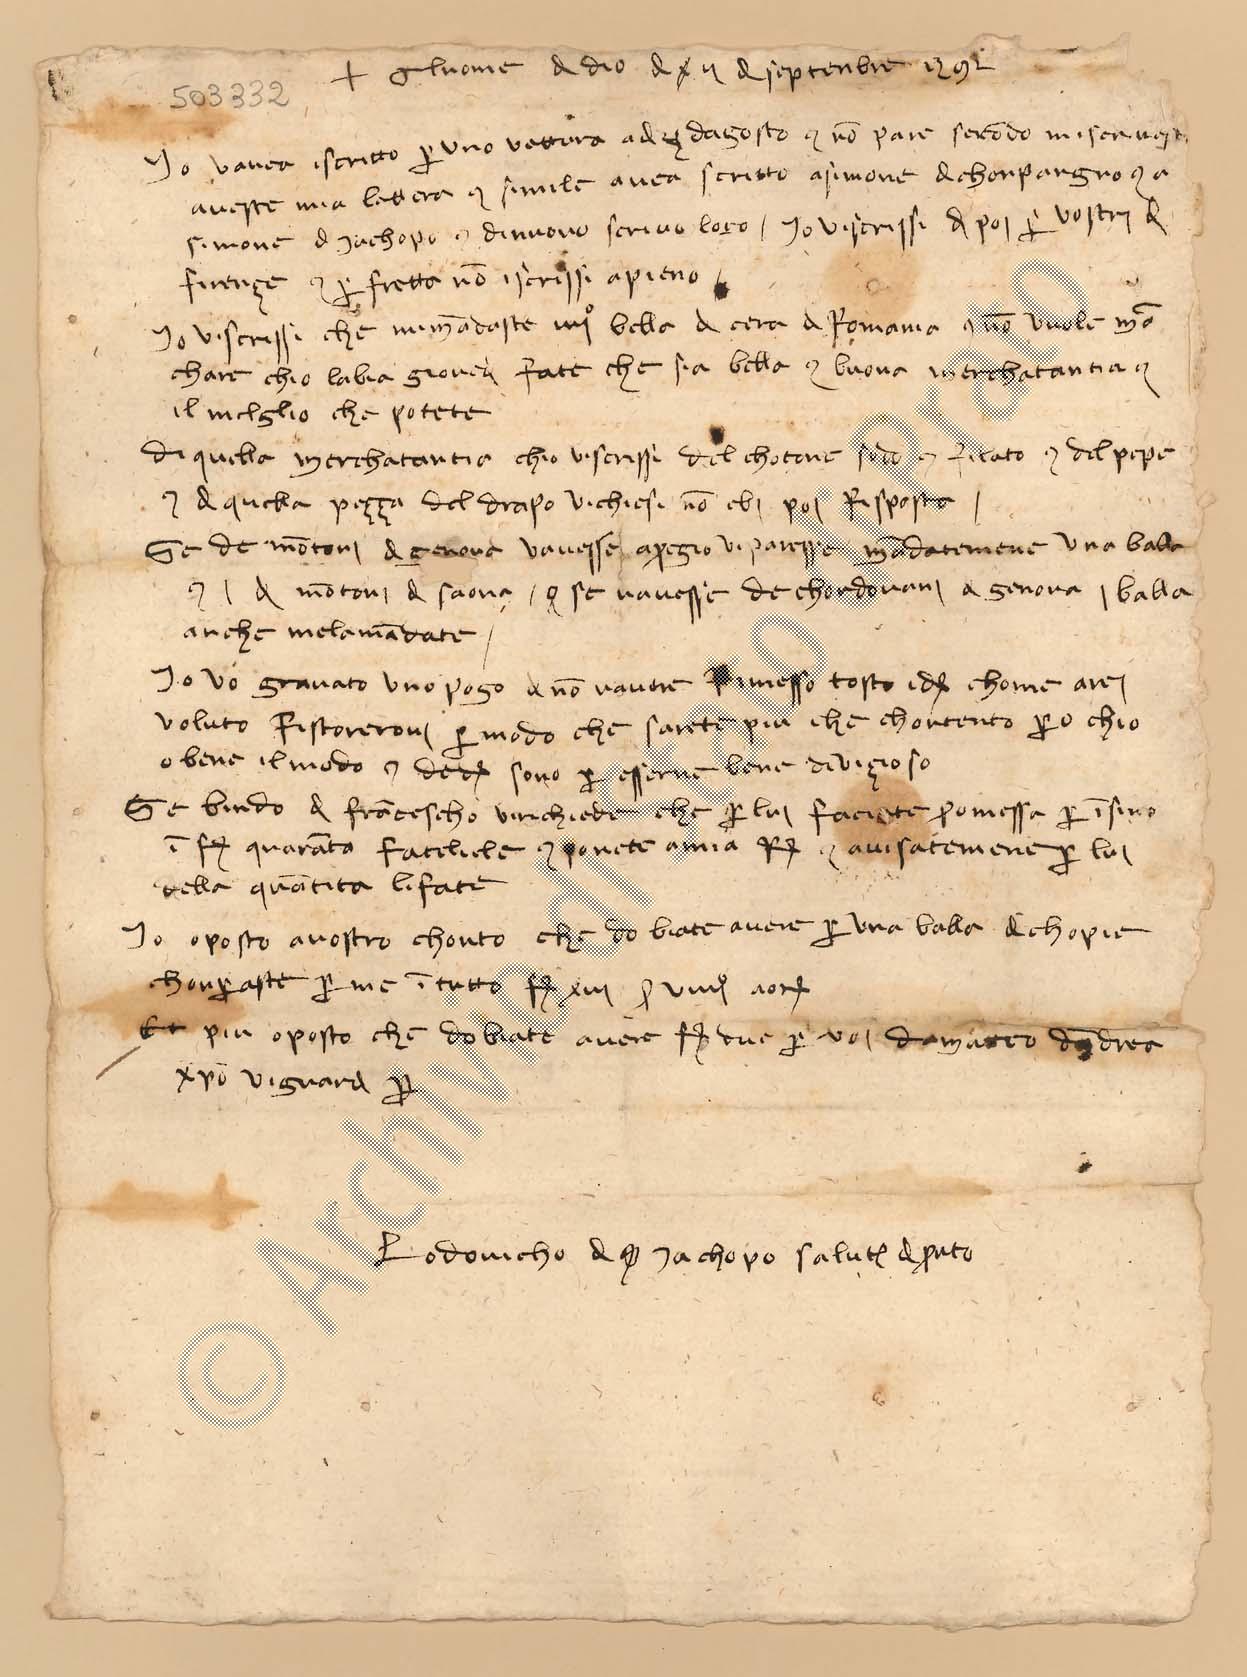 + Al nome di dio di xii di septenbre 1392
503332
Io vavea iscritto per uno vettura a dì d'agosto e nō pare secondo mi scrivest
aveste mia lettera e simile avea scritto a simone & chonpangno e a
simone & Jachopo e di nuovo scrivo loro / Io viscrissi di poi per vostri di
firenze e per fretta nō iscrissi apieno /
Io viscrissi che mi mādaste iiiiº balla di cera di Romania e nō vuole mā
chare chio labia fate che sia bella e buona merchatantia e
il melglio che potete
di quella merchatantia chio viscrissi del chotone sodo e filato e del pepe
e di quella pezza del drapo vichiesi nō ebi poi Risposta /
Se de mōtoni di genova vavesse a pregio vi paresse mādatemene una balla
e i di mōtoni di saona / e se vavesse de chordovani di genova i balla
anche mela mādate /
Io vo gravato uno pogo & nō vavere Rimesso tosto i d chome arei
voluto Ristorerovi per modo che sarete piu che chontento però chio
o bene il modo e de d sono per esserne bene divizioso
Se bindo & frāceschο virichiede che per lui faciate promessa per ī sino
ī f quarāta fateliele e ponete a mia R e avisatemene per lui
della quātita li fate
Io o posto a vostro chonto che dobiate avere per una balla di chopie
chonperaste per me ī tutto f xiii s viiiiº a oro
Et piu o posto che dobiate avere f due per voi da matteo dādrea
xpō vi guardi per
Lodovicho di ser Jachopo saluti di prato
© Archivio di Stato Prato